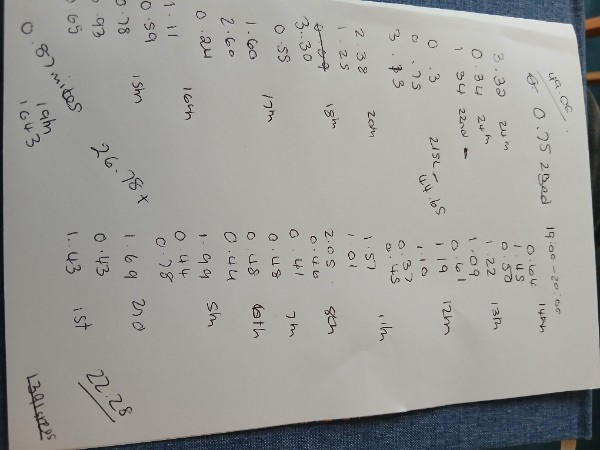 49.06
19:00 - 20:00
0.75
3.32 24th
0.34 24th
1.34 22nd -
0.3 21st - 44.65
0.75
2.38 20th
1.25
3.30 18th
0.55
1.60 17th
2.60
0.24 16th
1.11
0.59 15th
0.78
0.93
0.65
26.78
0.87 miles
19th
1643
0.164 14th
1.45
0.50
1.22 13th
1.09
0.61
1.19 12th
1.10
0.37
0.45
1.57 11th
1.01
2.05 8th
0.46
0.41 7th
0.48
0.48 6th
0.44
1.99 5th
0.44
0.78
1.69 2nd
0.43
1.43 1st
22.28